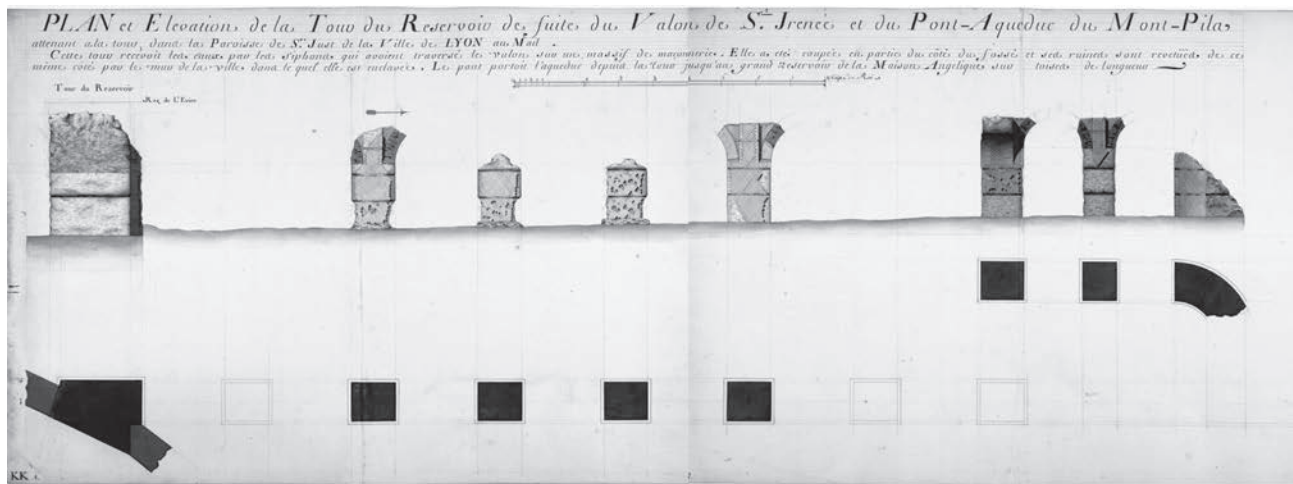 PLAN et Elevation de la Tour du Reservoir de suite du Valon de St. Jrenée et du Pont-Aqueduc du Mont-Pila
attenant a la tour, dans la Paroisse de St. Just de la Ville de LYON au Mail.
Cette tour recevoit les eaux par les siphons qui avoient traversé le valon sur un massif de maçonnerie. Elle a eté coupée en partie du côté du fossé et ses ruines sont revetües de ce
même coté par le mur de la ville dans le quel elle est enclavée. Le pont portoit l'aqueduc depuis la tour jusqu'au grand Reservoir de la Maison Angelique sur toises de longueur
Tour du Reservoir
Rez de L'
KK